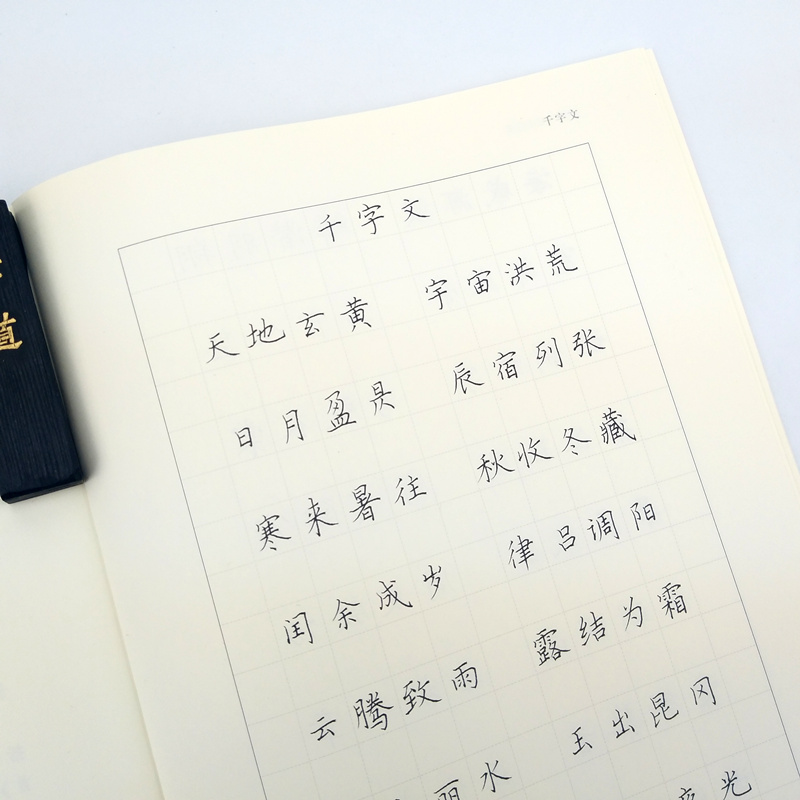 千字文
千字文
天地玄黄 宇宙洪荒
日月盈昃 辰宿列张
寒来暑往 秋收冬藏
闰余成岁 律吕调阳
云腾致雨 露结为霜
丽水 玉出昆冈
夜光
道